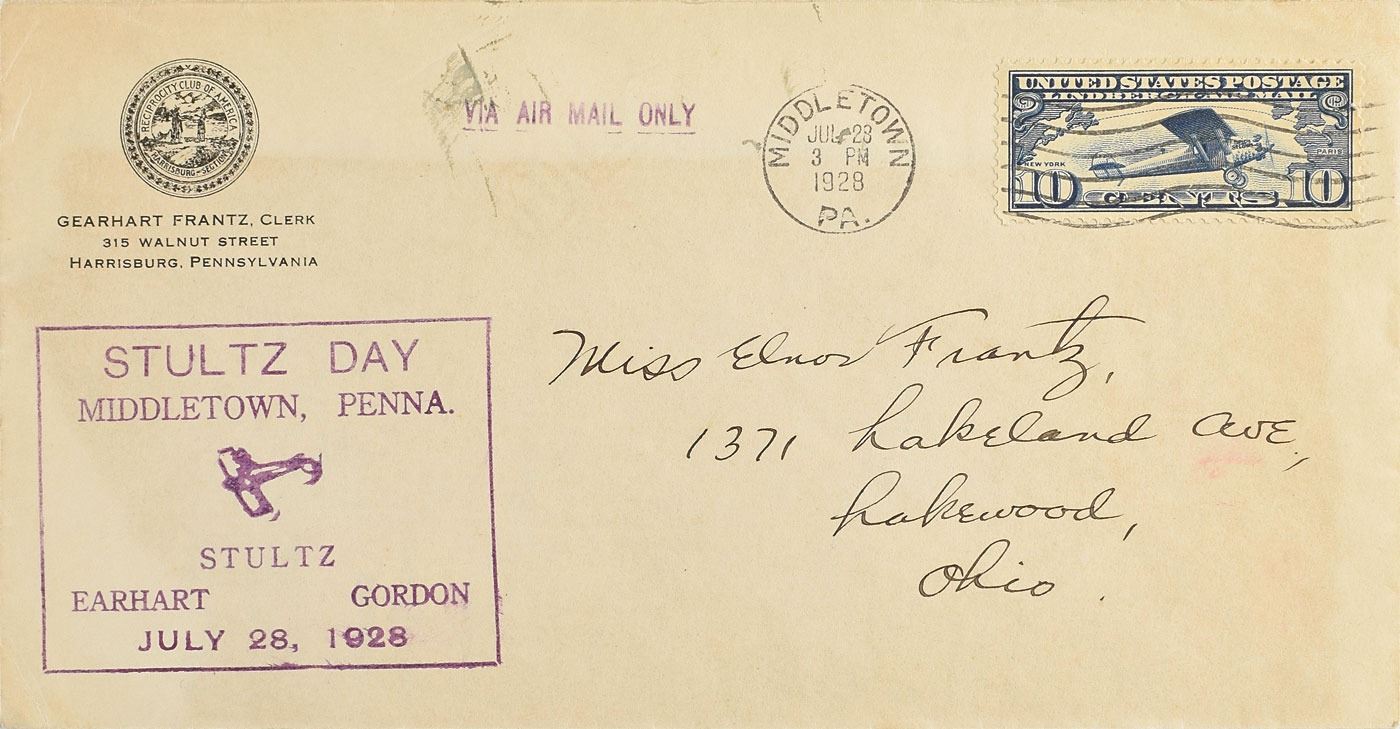 RECIPROCITY CLUB OF AMERICA
HARRISBURG-SECTION
GEARHART FRANTZ, CLERK
315 WALNUT STREET
HARRISBURG, PENNSYLVANIA
VIA AIR MAIL ONLY
MIDDLETOWN
JUL 28
3 PM
1928
PA.
UNITED STATES POSTAGE
LINDBERGH AIR MAIL
NEW YORK
PARIS
10 CENTS 10
STULTZ DAY
MIDDLETOWN, PENNA.
STULTZ
EARHART GORDON
JULY 28, 1928
Miss Elnor Frantz,
1371 Lakeland Ave.,
Lakewood,
Ohio.